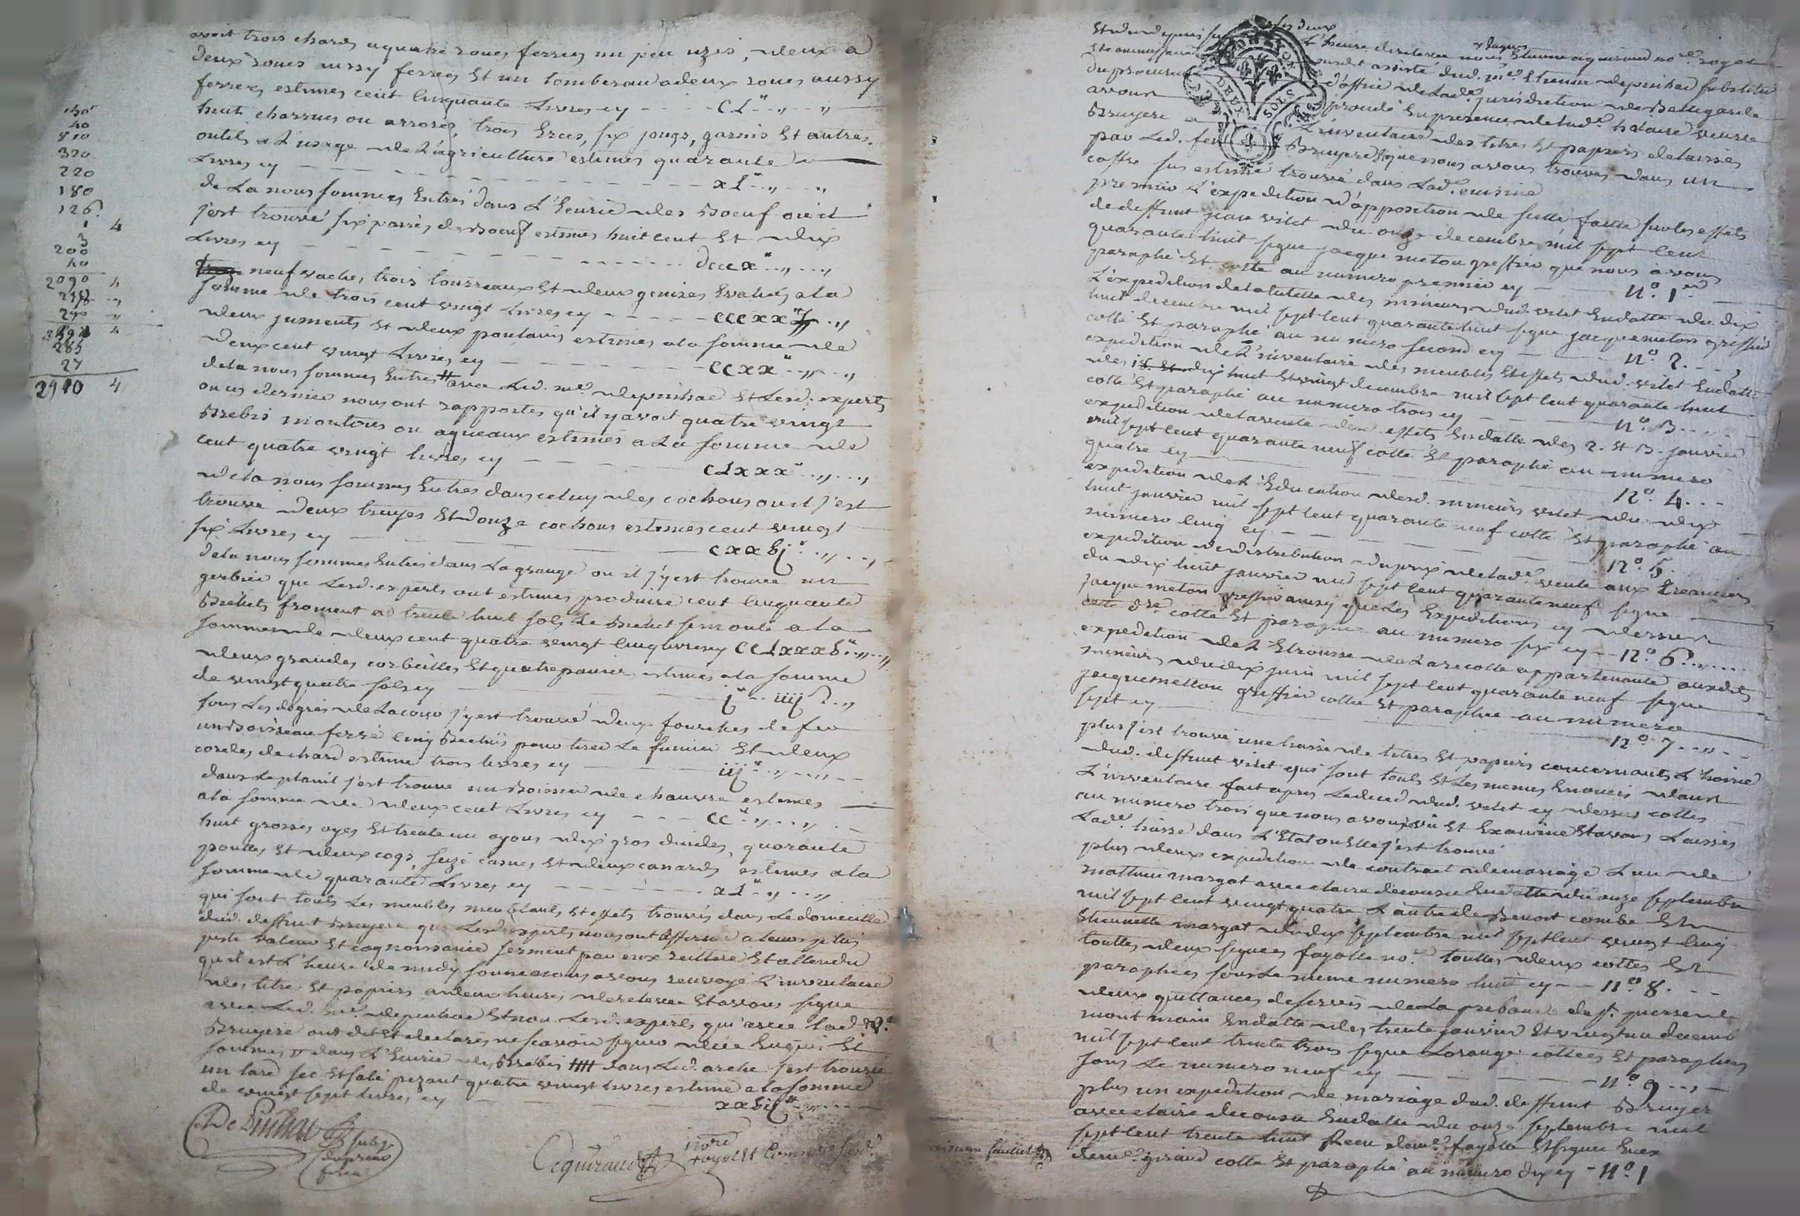 avoit trois chards aquatre roues ferrées un peu uzés, deux a
deux roues aussy ferrées Et un tombereau adeux roues aussy
ferrées estimés cent Cinquante Livres cy CL
huit charrues ou arroirs, trois herces, six jougs, garnis Et autres
outils a L'usage de L'agriculture estimés quarante
Livres cy xL
de La nous sommes Entrés dans L'Ecurie des Boeuf où il
s'est trouvé six paires de Boeuf estimés huit cent Et dix
Livres cy dcccx
neuf vaches, trois tourreaux Et deux genises Evalués a la
somme de trois cent vingt Livres cy cccxx
deux juments Et deux poulains estimés a la somme de
deux cent vingt Livres cy ccxx
de la nous sommes Entrés avec Led. me. depinhac Et Lesd. experts
ou ces derniers nous ont rapportés qu'il y avoit quatre vingt
Brebis moutons ou agneaux estimés a La somme de
cent quatre vingt livres cy cLxxx
de la nous sommes Entrés dans celuy des cochons ou il s'est
trouvé deux truyes Et douze cochons estimés cent vingt
six Livres cy cxxbj
de la nous sommes Entrés dans La grange ou il s'y est trouvé un
gerbier que Lesd. experts ont estimés produire cent cinquante
Bichets froment a trente huit sols Le Bichet se monte a la
somme de deux cent quatre vingt cinq livres cy ccLxxxb
deux grandes corbeilles Et quatre paniers estimés a la somme
de vingt quatre sols cy j iiij
sous Les degrés de La cour s'y est trouvé deux fourches de fer
un Boisseau ferré cinq Bechés pour tirer Le fumier Et deux
cordes de chard estimé trois livres cy iij
dans Le planit s'est trouvé un de chanvre estimés
a la somme de deux cent Livres cy cc
huit grosses oyes Et trente un oyons dix gros dindes, quarante
poules Et deux cogs, seize canes, Et deux canards estimés a la
somme de quarante Livres cy xL
qui sont touts Les meubles meublants Et effets trouvés dans Le domicille
dud. deffunt Bruyere que Lesd. experts nous ont affirmé a leur plus
juste valeur Et cognoissance serment par eux reitteré Et attendu
qu'il est L'heure de midy sonné nous avons renvoyé L'inventaire
des titres Et papiers a deux heures de relevée Et avons signé
avec Led. me. depinhac Et non Lesd. experts qu'avec Lad. ve.
Bruyere ont dit Et declarés ne scavoir signer de ce Enquis Et
sommés dans L'Ecurie des Brebis dans Led. arche s'est trouvé
un lard sec Et salé pezant quatre vingt livres estimé a la somme
de vingt sept livres cy xxbij
De Pinhac subs.
du proc.
fiscal
Eeguiraud
royal Et Commissre.
320
220
180
126
4
200
40
2090 4
285
27
2910 4
L'heure de relevée nous Etienne aguiraud no.re royal
Et comm.re assisté dud. me. Etienne depinhac substitut
du procureur d'office de Lad. jurisdiction de Bellegarde
avons procedé En presence de Lad. veuve
Bruyere a L'inventaire des titres Et papiers delaissés
par Led. feu Bruyere que nous avons trouvés dans un
coffre sus estimé trouvé dans Lad. cuisine
premier L'expedition d'apposition de scellé faitte sur les effets
de deffunt jean vilet du onze decembre mil sept cent
quarante huit signé jacquemeton greffier que nous avons
paraphé Et cotté au numero premier cy no. 1er
L'expedition de la tutelle des mineurs dud. vilet En datte du dix
huit decembre mil sept cent quarante huit signé jacquemeton greffier
cotté Et paraphé au numero second cy no. 2
expedition de L'inventaire des meubles Et effets dud. vilet En datte
des dix huit Et vingt decembre mil sept cent quarante huit
cotté Et paraphé au numero trois cy no. 3
expedition de la vente des effets En datte des 2. Et 3. janvier
mil sept cent quarante neuf cotté Et paraphé au numero
quatre cy no. 4
expedition de L'Education desd. mineurs vilet du dix
huit janvier mil sept cent quarante neuf cotté Et paraphé au
numero cinq cy no. 5
expedition de distribution du prix de Lad. vente aux Creanciers
du dix huit janvier mil sept cent quarante neuf signé
jacquemeton greffier ainsy que Les Expeditions cy dessus
cotté Et paraphé au numero six cy no. 6
expedition de L'Etrousse de La recolte appartenante auxdits
mineurs du dix juin mil sept cent quarante neuf signé
jacquemetton greffier cotté Et paraphée au numero
sept cy no. 7
plus s'est trouvé une liasse de titres Et papiers concernants L'hoirie
dud. deffunt vilet qui sont touts Et Les memes Enoncés dans
L'inventaire fait apres Le deced dud. vilet cy dessus cottés
au numero trois que nous avons vû Et Examiné Et avons Laissés
Lad. liasse dans L'Etat ou Elle s'est trouvé
plus deux expedition de contract de mariage L'un de
mathieu margot avec claire decousu En datte du onze septembre
mil sept cent vingt quatre L'autre de Benoit combe Et
Etiennette margot du dix septembre mil sept cent vingt cinq
touttes deux signées fayolle no.re touttes deux cottés Et
paraphées sous Le meme numero huit cy no. 8
deux quittances de servis de La prebande de St.
montmain En datte des trente janvier Et vingt un decemb
mil sept cent trente trois signé Lorange cottées Et paraphées
sous Le numero neuf cy no. 9
plus un expedition de mariage dud. deffunt Bruyer
avec claire decousu En datte du onze septembre mil
sept cent trente huit Receu de me. fayolle Et signé Enex
de me. giraud cotté Et paraphé au numero dix cy no. 1